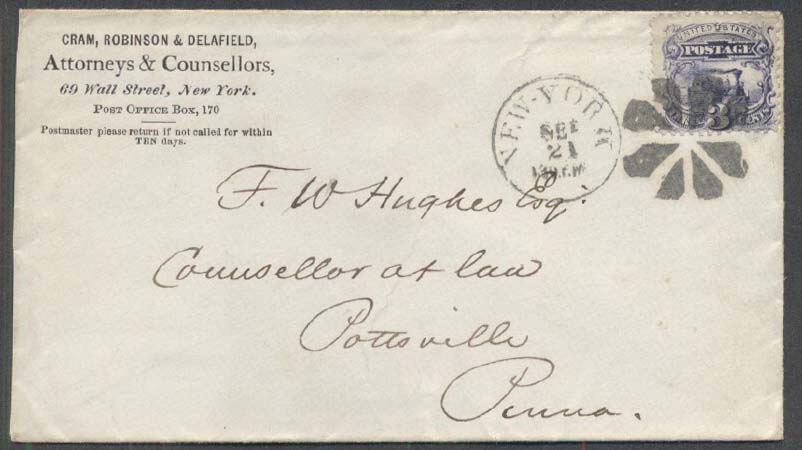 CRAM, ROBINSON & DELAFIELD,
Attorneys & Counsellors,
69 Wall Street, New York.
POST OFFICE BOX, 170
Postmaster please return if not called for within
TEN days.
NEW-YORK
SEP
21
UNITED STATES
POSTAGE
3
F. W Hughes Esq.
Counsellor at law
Pottsville
Penna.